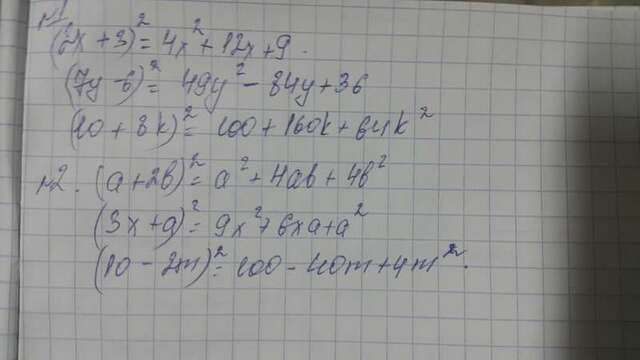 №1
(2x + 3)² = 4x² + 12x + 9.
(7y - 6)² = 49y² - 84y + 36
(10 + 8k)² = 100 + 160k + 64k²
№2. (a + 2b)² = a² + 4ab + 4b²
(3x + a)² = 9x² + 6xa + a²
(10 - 2m)² = 100 - 40m + 4m².